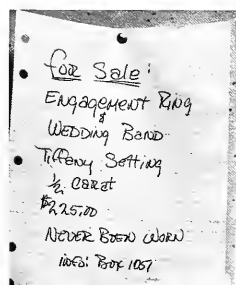 for Sale:
Engagement Ring
&
Wedding Band
Tiffany Setting
1/2 carat
$225.00
NEVER BEEN WORN
INFO: BOX 1057